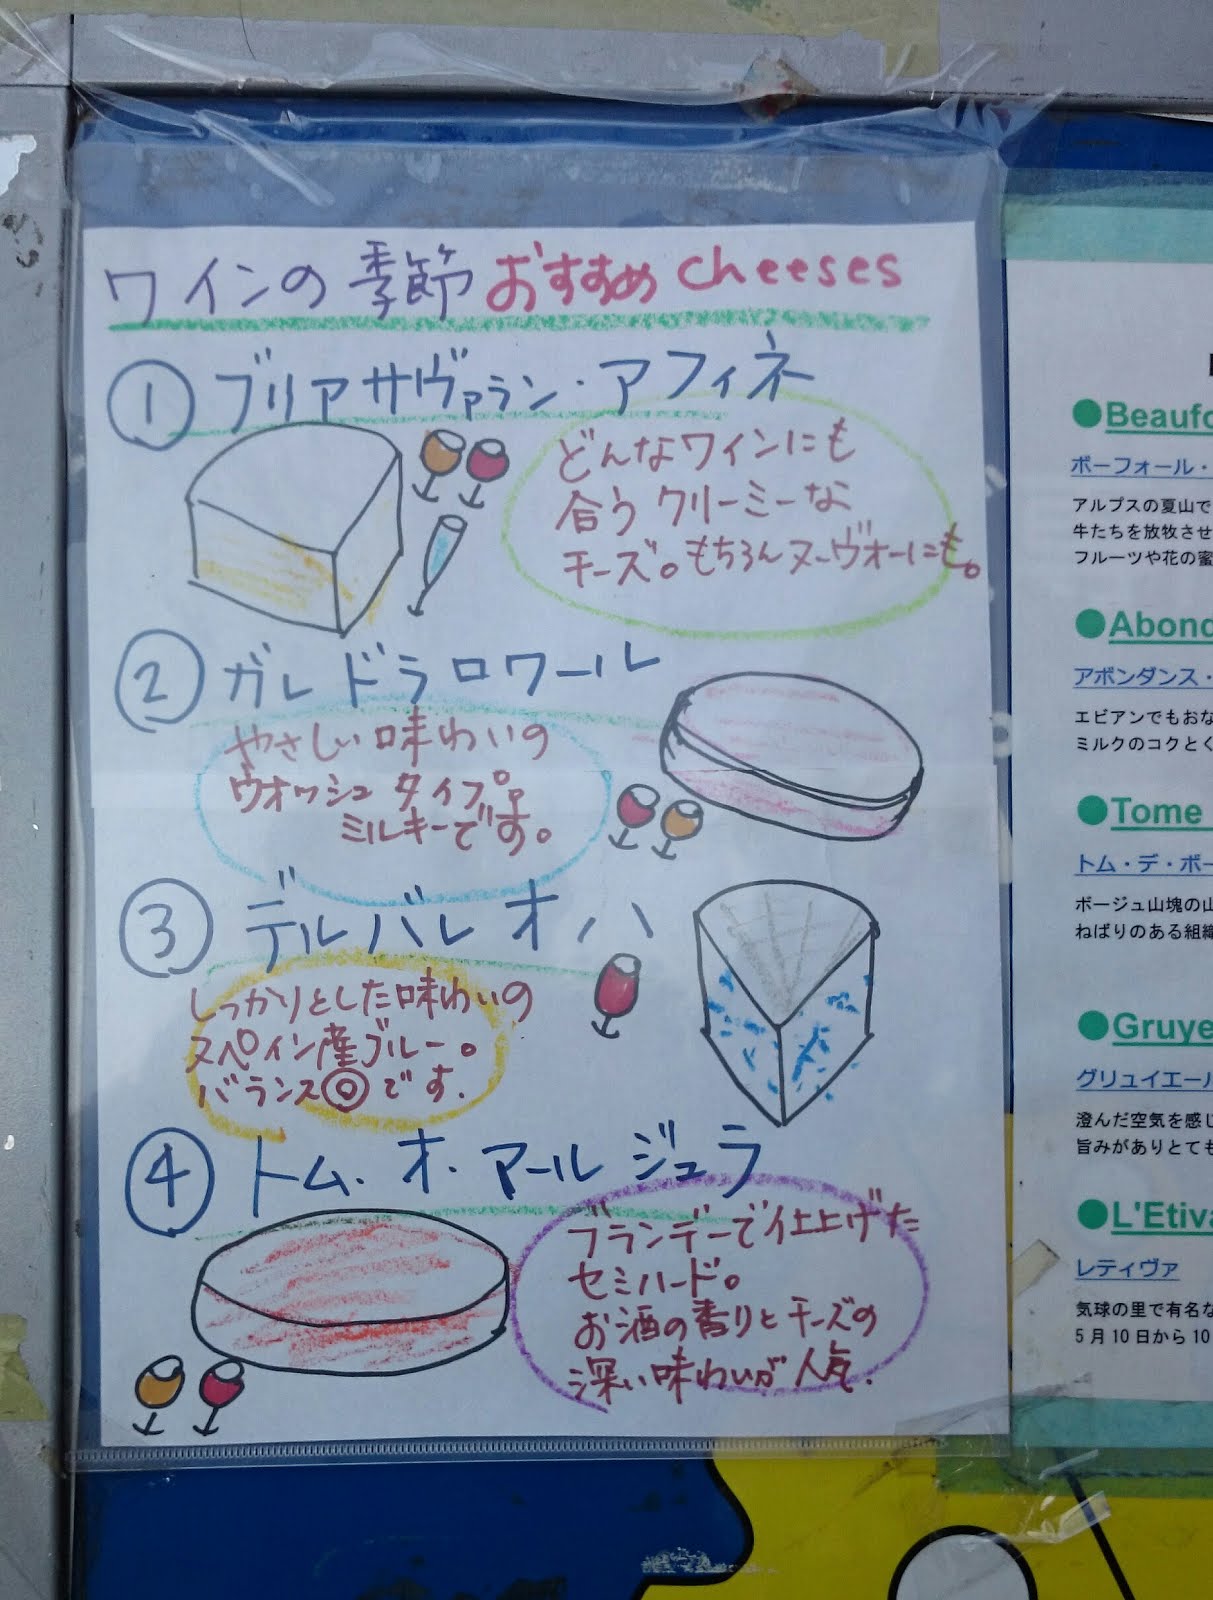 ワインの季節 おすすめ cheeses
① ブリアサヴァラン・アフィネ
どんなワインにも
合う クリーミーな
チーズ。もちろんヌーヴォーにも。
② ガレ ド ラ ロワール
やさしい味わいの
ウォッシュ タイプ。
ミルキーです。
③ デルバレ オハ
しっかりとした味わいの
スペイン産ブルー。
バランス◎です.
④ トム・オ・マール ジュラ
ブランデーで仕上げた
セミハード。
お酒の香りとチーズの
深い味わいが人気.
●Beaufo
ボーフォール・
アルプスの夏山で
牛たちを放牧させ
フルーツや花の蜜
●Abond
アボンダンス・
エビアンでもおな
ミルクのコクとく
●Tome
トム・デ・ボー
ボージュ山塊の山
ねばりのある組織
●Gruye
グリュイエール
澄んだ空気を感じ
旨みがありとても
●L'Etiva
レティヴァ
気球の里で有名な
5月10日から10